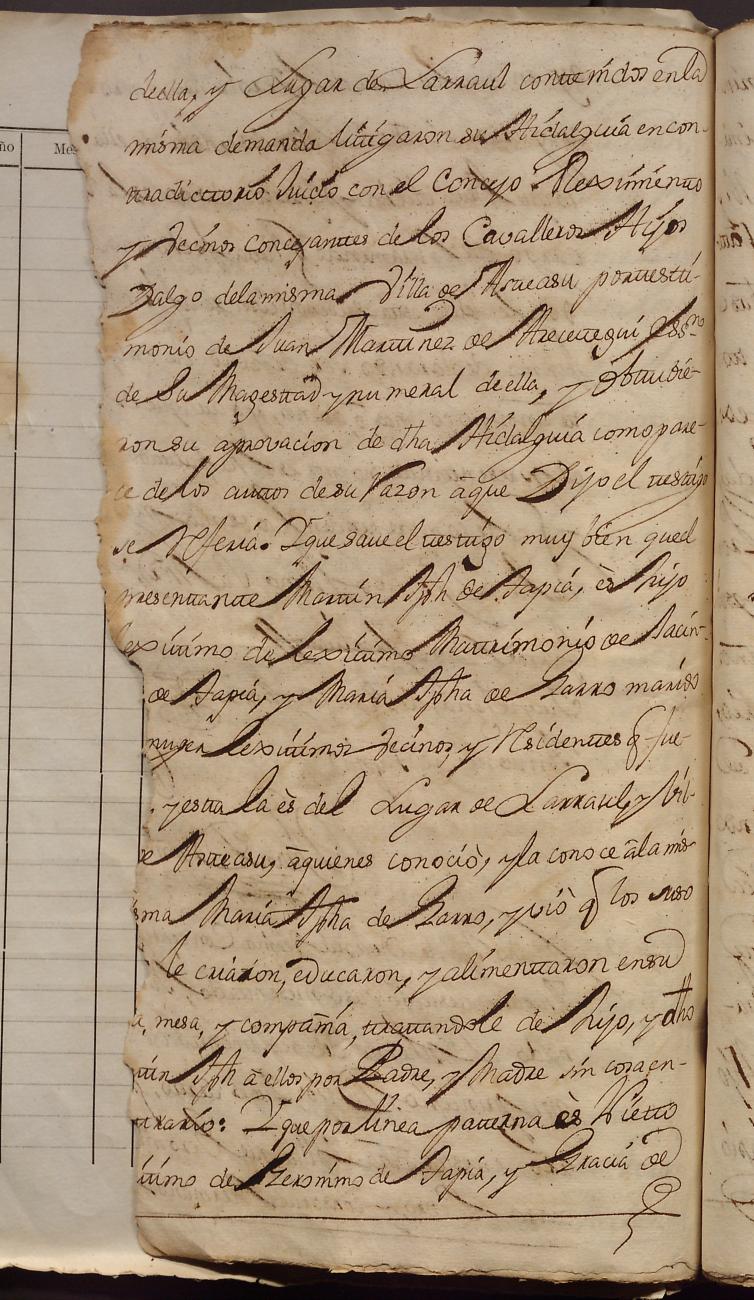 deella, y Lugar de Larraul contenidos en la
misma demanda litigaron su Hidalguia encon-
tradictorio Juicio con el Concejo Reximiento
y Vecinos concejantes de los Cavalleros Hijos
Dalgo dela misma Villa de Asteasu por testi-
monio de Juan Martinez de Arteitegui Essno
de Su Magestad y numeral deella, y obtubie-
ron su aprovacion de dha Hidalguia como pare-
ce de los autos desu razon àque Dijo el testigo
se referia. Y que save el testigo muy bien quel
presentante Martin Jph de Tapia, ès hijo
lexitimo de lexitimo Matrimonio de Jacin-
de Tapia, y Maria Jpha de Garro marido
muger lexitimos vecinos, y residentes q fue-
y esta la ès del Lugar de Larraul, y Vil-
de Asteasu, àquienes conociò, y la conoce àla mis-
sma Maria Jpha de Garro, y viò q los suso
le criaron, educaron, y alimentaron en su
mesa, y compañia, tratandole de hijo, y dho
tin Jph à ellos por Padre, y Madre sin cosa en-
trario: Y que por linea paterna ès Nietto
itimo de Geronimo de Tapia, y Gracia de